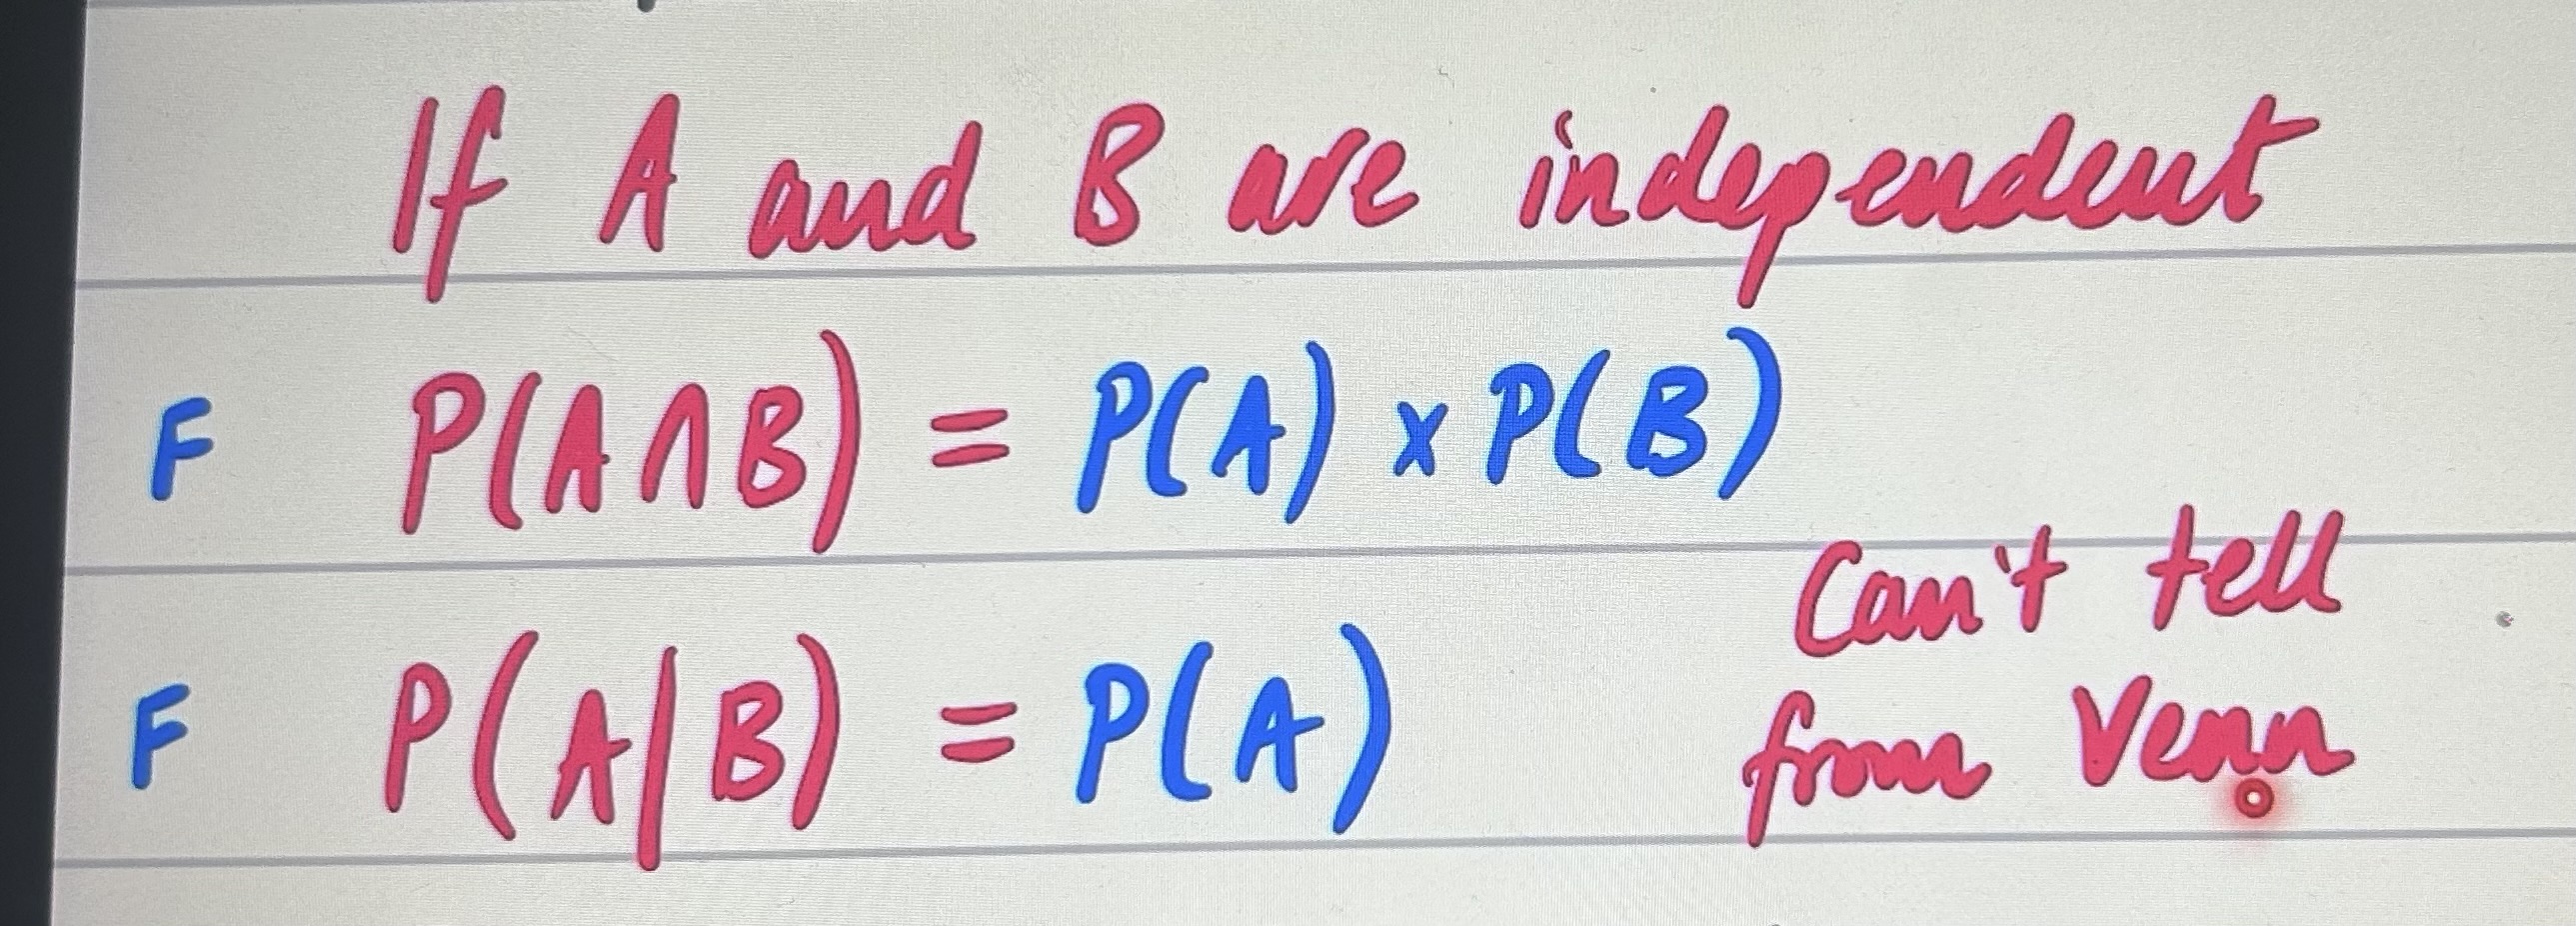 If A and B are independent
F P(A∩B) = P(A) x P(B)
Can't tell
F P(A|B) = P(A)
from Venn